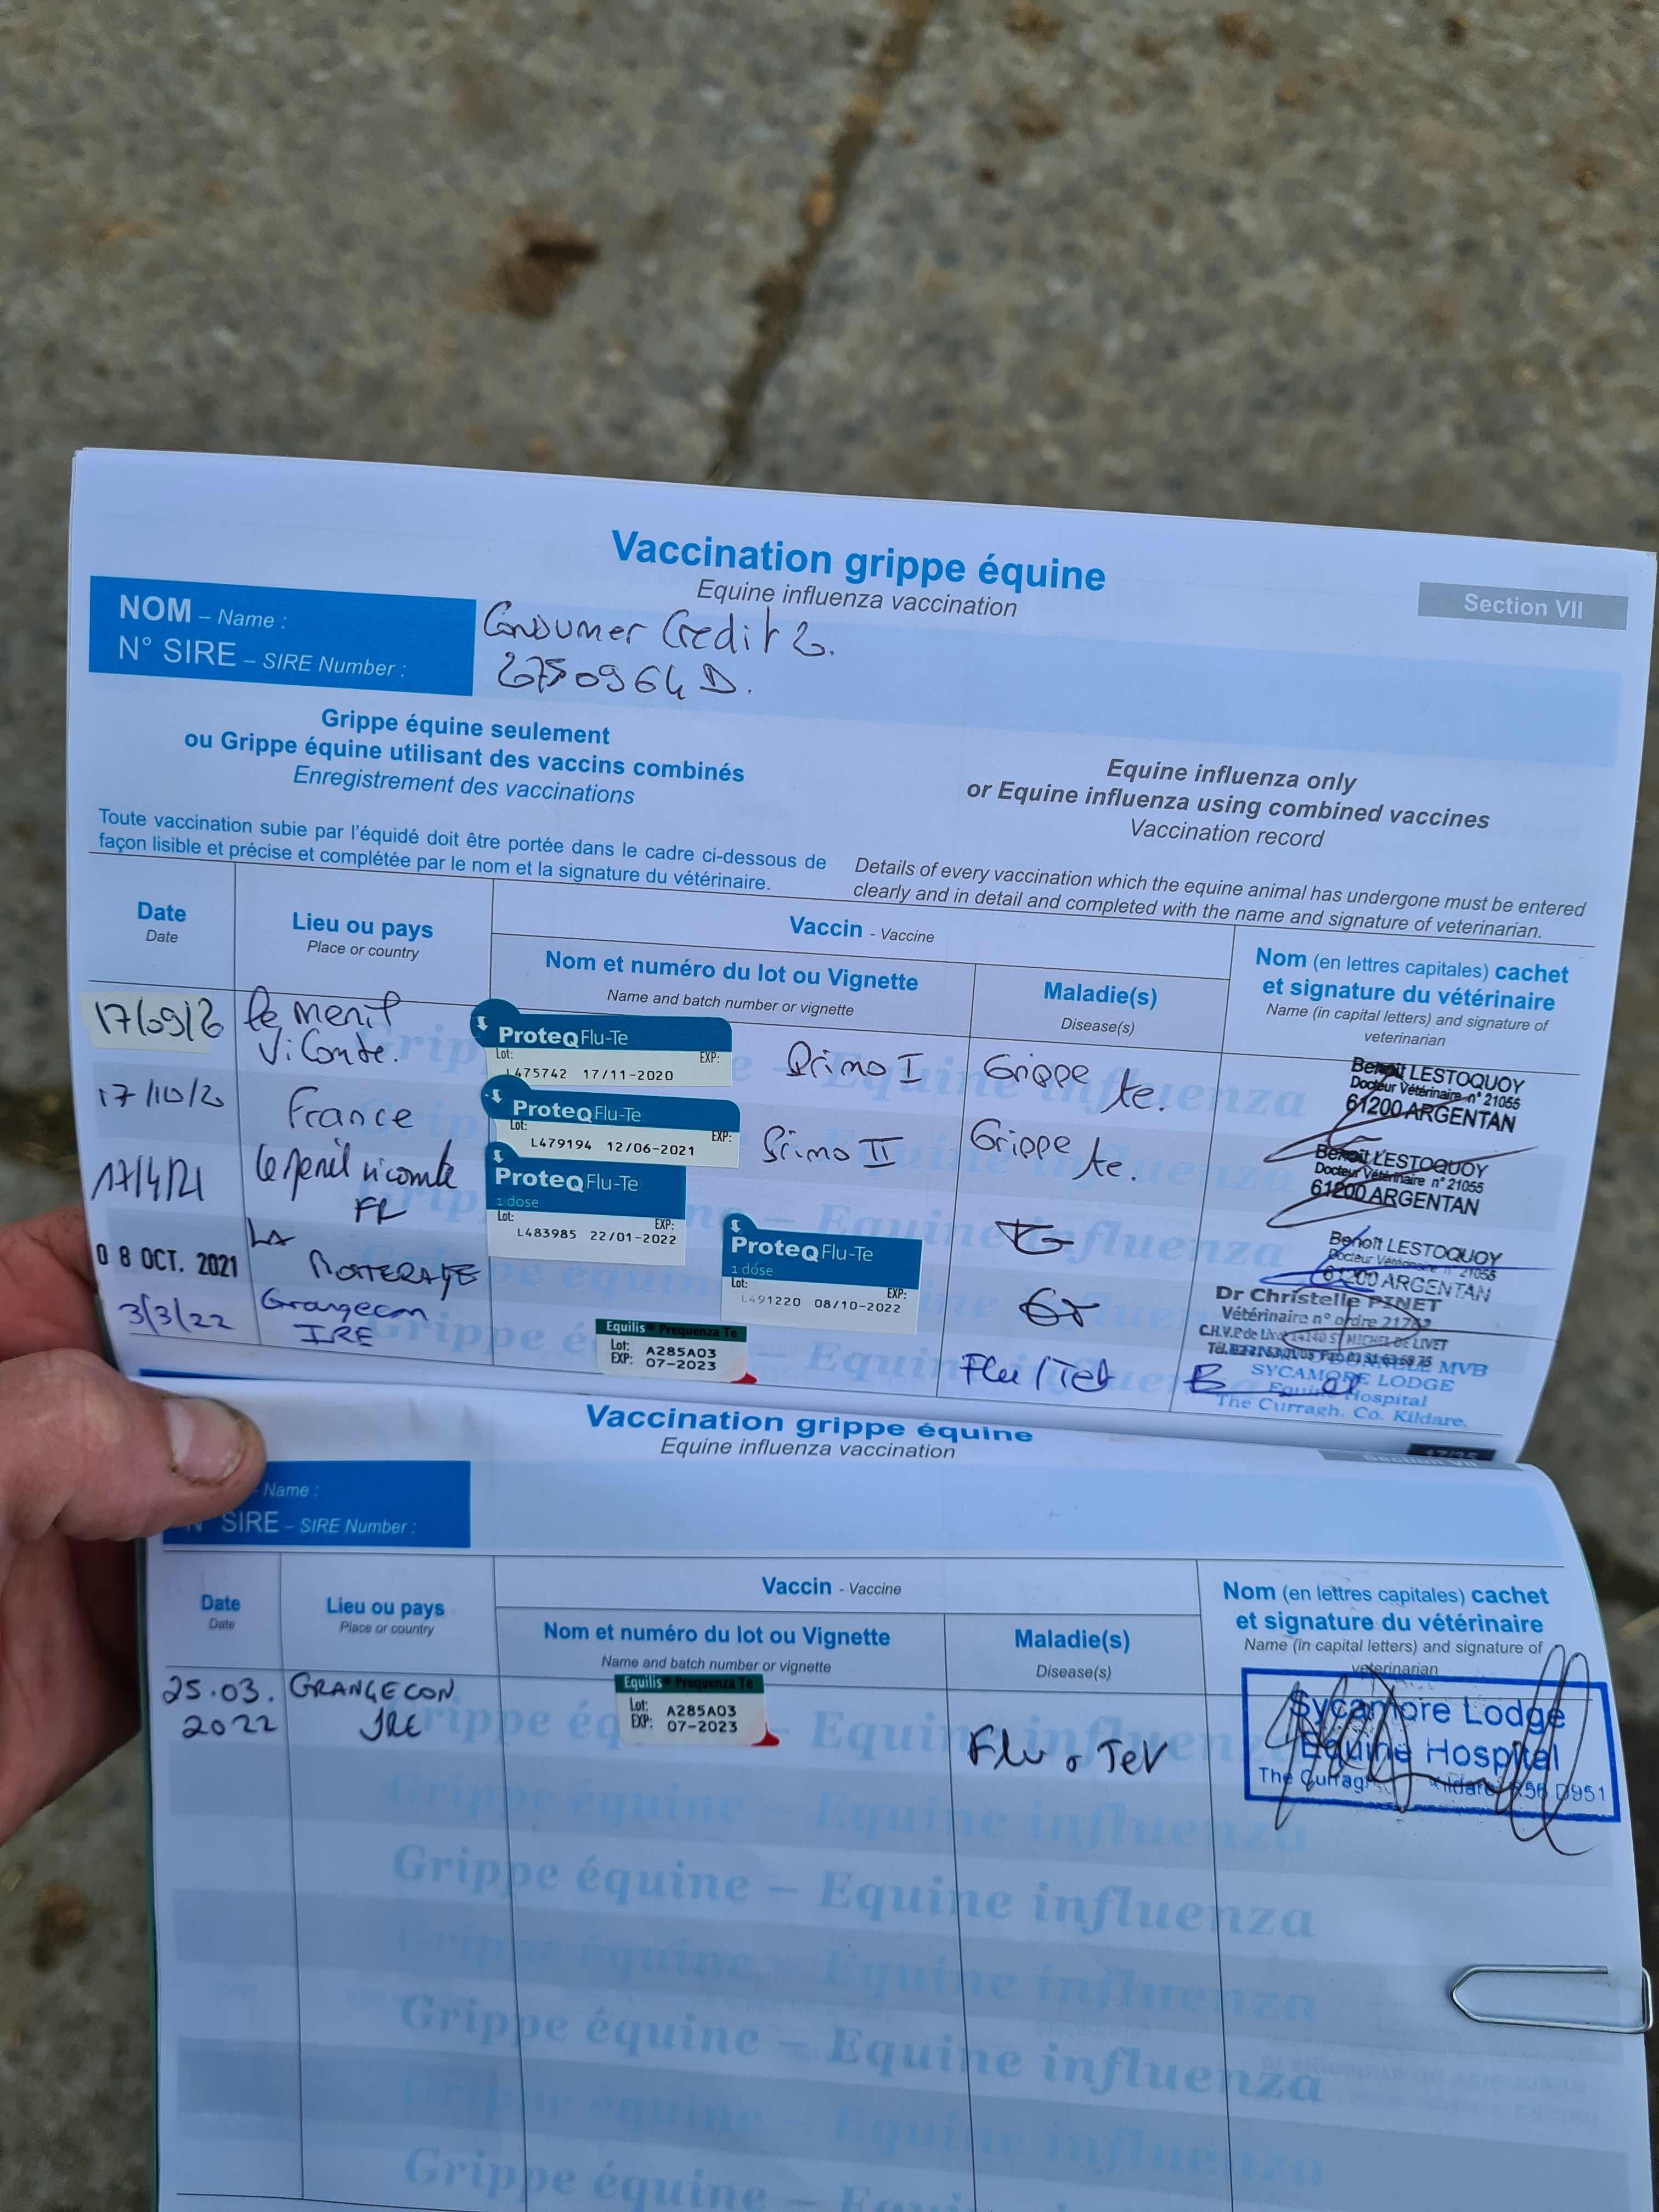 Vaccination grippe équine
Equine influenza vaccination
Section VII
NOM – Name :
N° SIRE – SIRE Number :
Consumer Credit
Grippe équine seulement
ou Grippe équine utilisant des vaccins combinés
Enregistrement des vaccinations
Equine influenza only
or Equine influenza using combined vaccines
Vaccination record
Toute vaccination subie par l'équidé doit être portée dans le cadre ci-dessous de
façon lisible et précise et complétée par le nom et la signature du vétérinaire.
Details of every vaccination which the equine animal has undergone must be entered
clearly and in detail and completed with the name and signature of veterinarian.
Date
Date
Lieu ou pays
Place or country
Vaccin - Vaccine
Nom et numéro du lot ou Vignette
Name and batch number or vignette
Maladie(s)
Disease(s)
Nom (en lettres capitales) cachet
et signature du vétérinaire
Name (in capital letters) and signature of
veterinarian
17/09/20
Le menil
Vicomte.
ProteqFlu-Te
Lot: EXP:
L475742 17/11-2020
Primo I
Grippe te.
Benoît LESTOQUOY
Docteur Vétérinaire n° 21055
61200 ARGENTAN
17/10/20
France
ProteqFlu-Te
Lot: EXP:
L479194 12/06-2021
Primo II
Grippe te.
Benoît LESTOQUOY
Docteur Vétérinaire n° 21055
61200 ARGENTAN
17/4/21
Le menil vicomte
FR
ProteqFlu-Te
1 dose
Lot: EXP:
L483985 22/01-2022
TG
Benoît LESTOQUOY
Docteur Vétérinaire n° 21055
61200 ARGENTAN
08 OCT. 2021
LA
ProteqFlu-Te
1 dose
Lot: EXP:
L491220 08/10-2022
GT
Dr Christelle PINET
Vétérinaire n° ordre
14140 ST MICHEL DE LIVET
3/3/22
Grangecon
IRE
Equilis Prequenza Te
Lot: A285A03
EXP: 07-2023
Flu/Tet
MVB
SYCAMORE LODGE
Equine Hospital
The Curragh. Co. Kildare.
Vaccination grippe équine
Equine influenza vaccination
Section VII
Name :
N° SIRE – SIRE Number :
Date
Date
Lieu ou pays
Place or country
Vaccin - Vaccine
Nom et numéro du lot ou Vignette
Name and batch number or vignette
Maladie(s)
Disease(s)
Nom (en lettres capitales) cachet
et signature du vétérinaire
Name (in capital letters) and signature of
veterinarian
25.03.
2022
GRANGECON
IRE
Equilis Prequenza Te
Lot: A285A03
EXP: 07-2023
Flu & Tet
Sycamore Lodge
Equine Hospital
The Curragh Kildare R56 D951
Grippe équine – Equine influenza
Grippe équine – Equine influenza
Grippe équine – Equine influenza
Grippe équine – Equine influenza
Grippe équine – Equine influenza
Grippe équine – Equine influenza
Grippe équine – Equine influenza